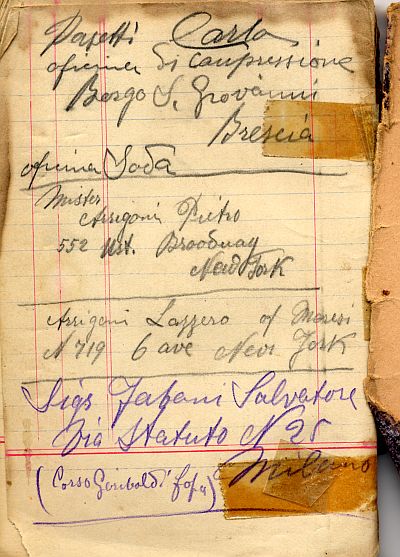 Pasetti Carlo
oficina di Compressione
Borgo S. Giovanni
Brescia
oficina Soda
Mister
Arrigoni Pietro
552 Ust. Broodway
New York
Arrigoni Lazzero of
N 719 6 ave New York
Sigs Fabani Salvatore
Via Statuto N 25
Milano
(Corso Garibaldi